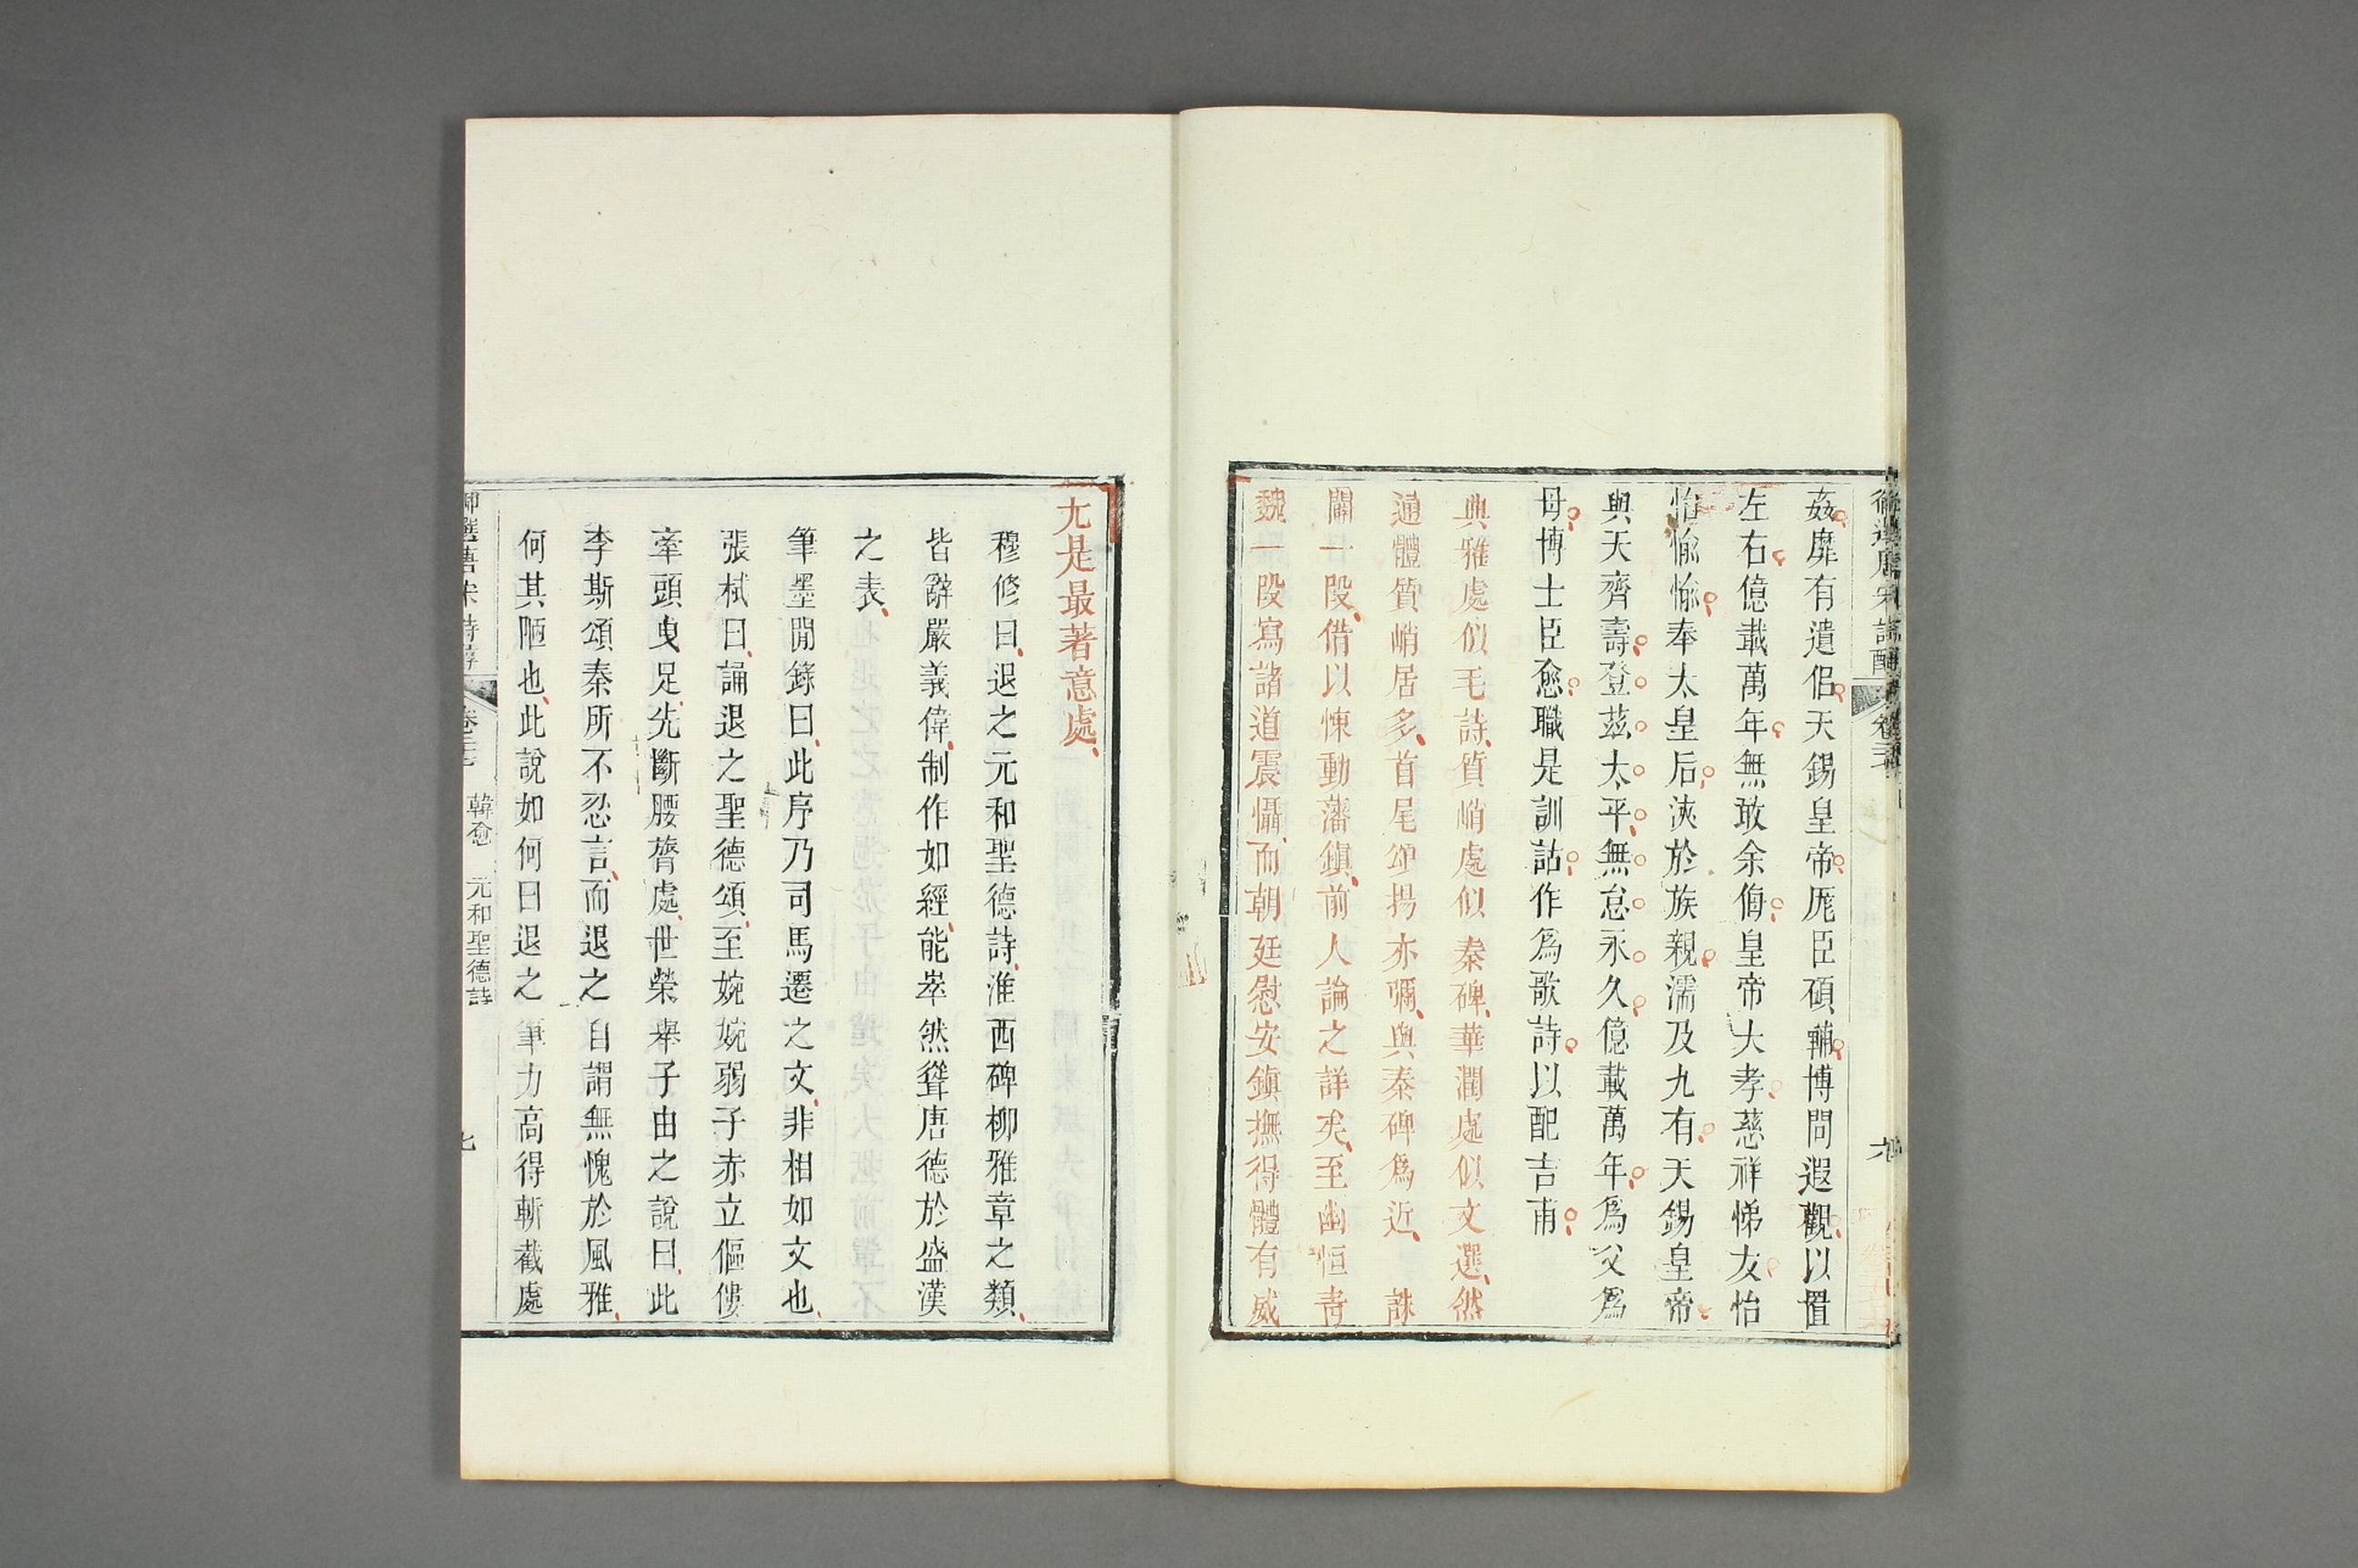 姦靡有遺侶天錫皇帝厖臣碩輔博問遐觀以置
左右億載萬年無敢余侮皇帝大孝慈祥悌友怡
怡愉愉奉太皇后浹於族親濡及九有天錫皇帝
與天齊壽登茲太平無怠永久億載萬年爲父爲
母博士臣愈職是訓詁作爲歌詩以配吉甫
典雅處似毛詩質峭處似秦碑華潤處似文選然
通體質峭居多首尾頌揚亦彌與秦碑爲近 誅
闢一段借以悚動藩鎮前人論之詳矣至幽恒靑
魏一段寫諸道震懾而朝廷慰安鎮撫得體有威
尤是最著意處
穆修曰退之元和聖德詩淮西碑柳雅章之類
皆辭嚴義偉制作如經能崒然聳唐德於盛漢
之表
筆墨閒錄曰此序乃司馬遷之文非相如文也
張栻曰誦退之聖德頌至婉婉弱子赤立傴僂
牽頭曳足先斷腰膂處世榮舉子由之說曰此
李斯頌秦所不忍言而退之自謂無愧於風雅
何其陋也此說如何曰退之筆力高得斬截處
御選唐宋詩醇 卷二十七 韓愈 元和聖德詩 七